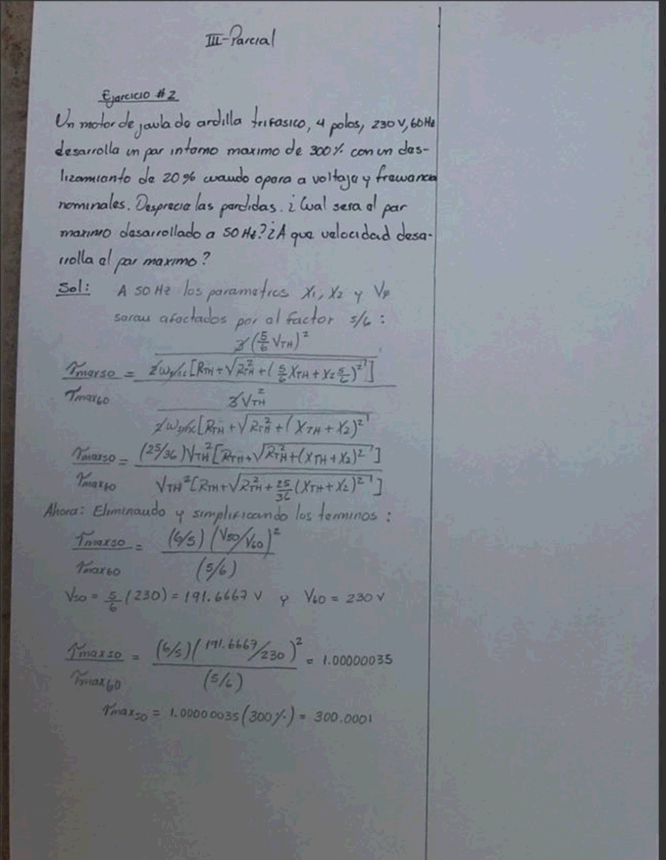 III-Parcial
Ejercicio #2
Un motor de jaula de ardilla trifasico, 4 polos, 230 V, 60 Hz
desarrolla un par interno maximo de 300% con un des-
lizamiento de 20% cuando opera a voltaje y frewancia
nominales. Desprecie las perdidas. ¿Cual sera el par
maximo desarrollado a 50 Hz? ¿A que velocidad desa-
rrolla el par maximo?
Sol: A 50 Hz los parametros X1, X2 y Vφ
seran afectados por el factor 5/6:
τmax50 / τmax60 = [3(5/6 VTH)^2 / 2ωsinc[RTH + √(RTH^2 + (5/6 XTH + X2 5/6)^2)]] / [3VTH^2 / 2ωsinc[RTH + √(RTH^2 + (XTH + X2)^2)]]
τmax50 / τmax60 = (25/36) VTH^2 [RTH + √(RTH^2 + (XTH + X2)^2)] / VTH^2 [RTH + √(RTH^2 + 25/36 (XTH + X2)^2)]
Ahora: Eliminando y simplificando los terminos:
τmax50 / τmax60 = (6/5) (V50/V60)^2 / (5/6)
V50 = 5/6 (230) = 191.6667 V y V60 = 230 V
τmax50 / τmax60 = (6/5) (191.6667/230)^2 / (5/6) = 1.00000035
τmax50 = 1.00000035 (300%) = 300.0001